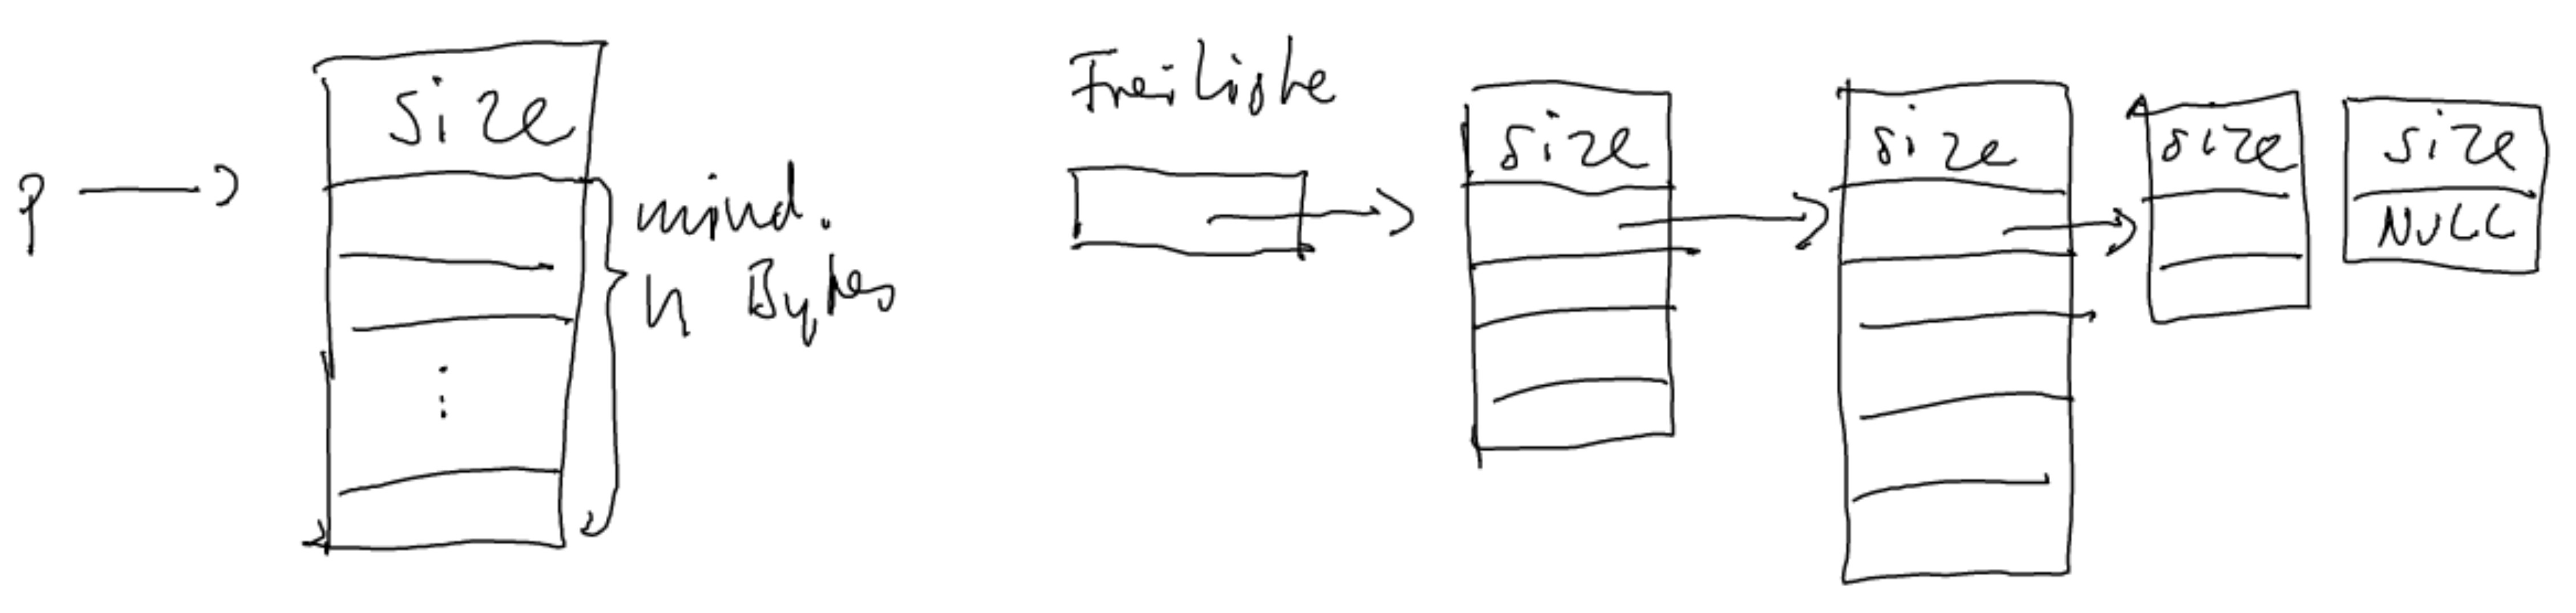 size
p
mind.
n Bytes
Freiliste
size
size
size
size
NULL